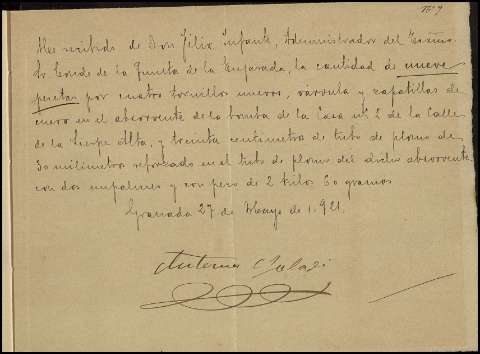 Nº 9
He recibido de Don Félix Infante, Administrador del Excmo.
Sr. Conde de la Quinta de la Enjarada, la cantidad de nueve
pesetas por cuatro tornillos nuevos, válvula y zapatillas de
cuero en el absorvente de la bomba de la Casa nº 2 de la Calle
de la Sierpe Alta, y treinta centimetros de tubo de plomo de
30 milimetros reforzado en el tubo de plomo del dicho absorvente
con dos empalmes y con peso de 2 kilos 60 gramos
Granada 27 de Mayo de 1.921.
Antonio